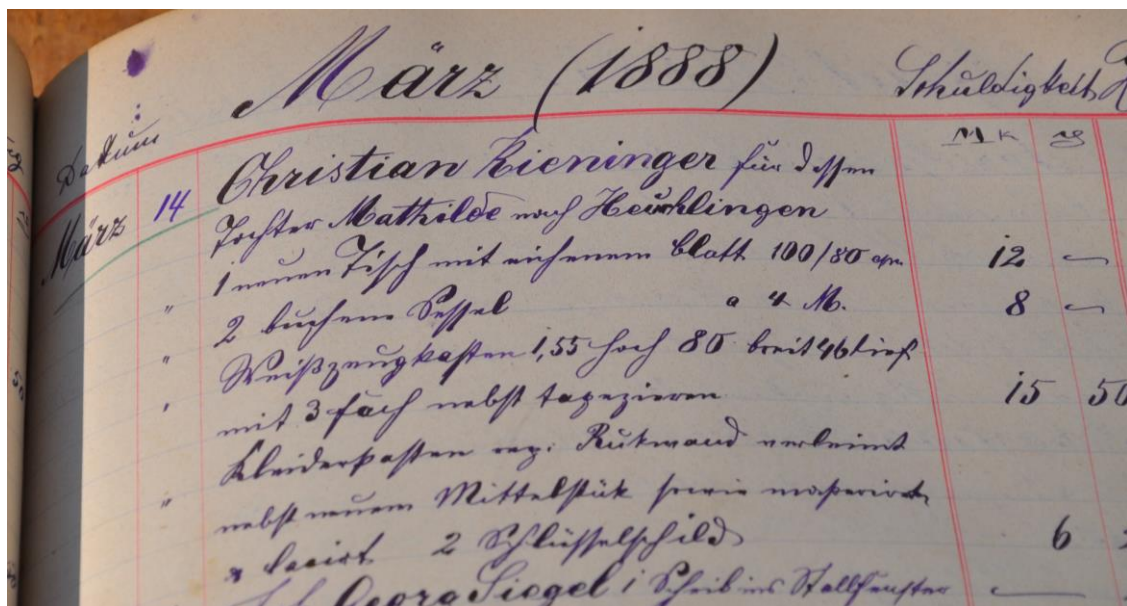 März (1888) Schuldigkeit
Datum Mk
März 14 Christian Bieninger für dessen
Tochter Mathilde nach Heuchlingen
1 neuen Tisch mit eichenem Blatt 100/80 12 —
" 2 buchene Sessel a 4 M. 8 —
" Weißzeugkasten 1,55 hoch 80 breit 46 tief
" mit 3 fach nebst tapezieren 15 50
Kleiderkasten rep: Rukwand verleimt
" nebst neuem Mittelstük sowie
lacirt 2 Schlüsselschild 6
Georg Siegel 1 Scheib ins Stallfenster —